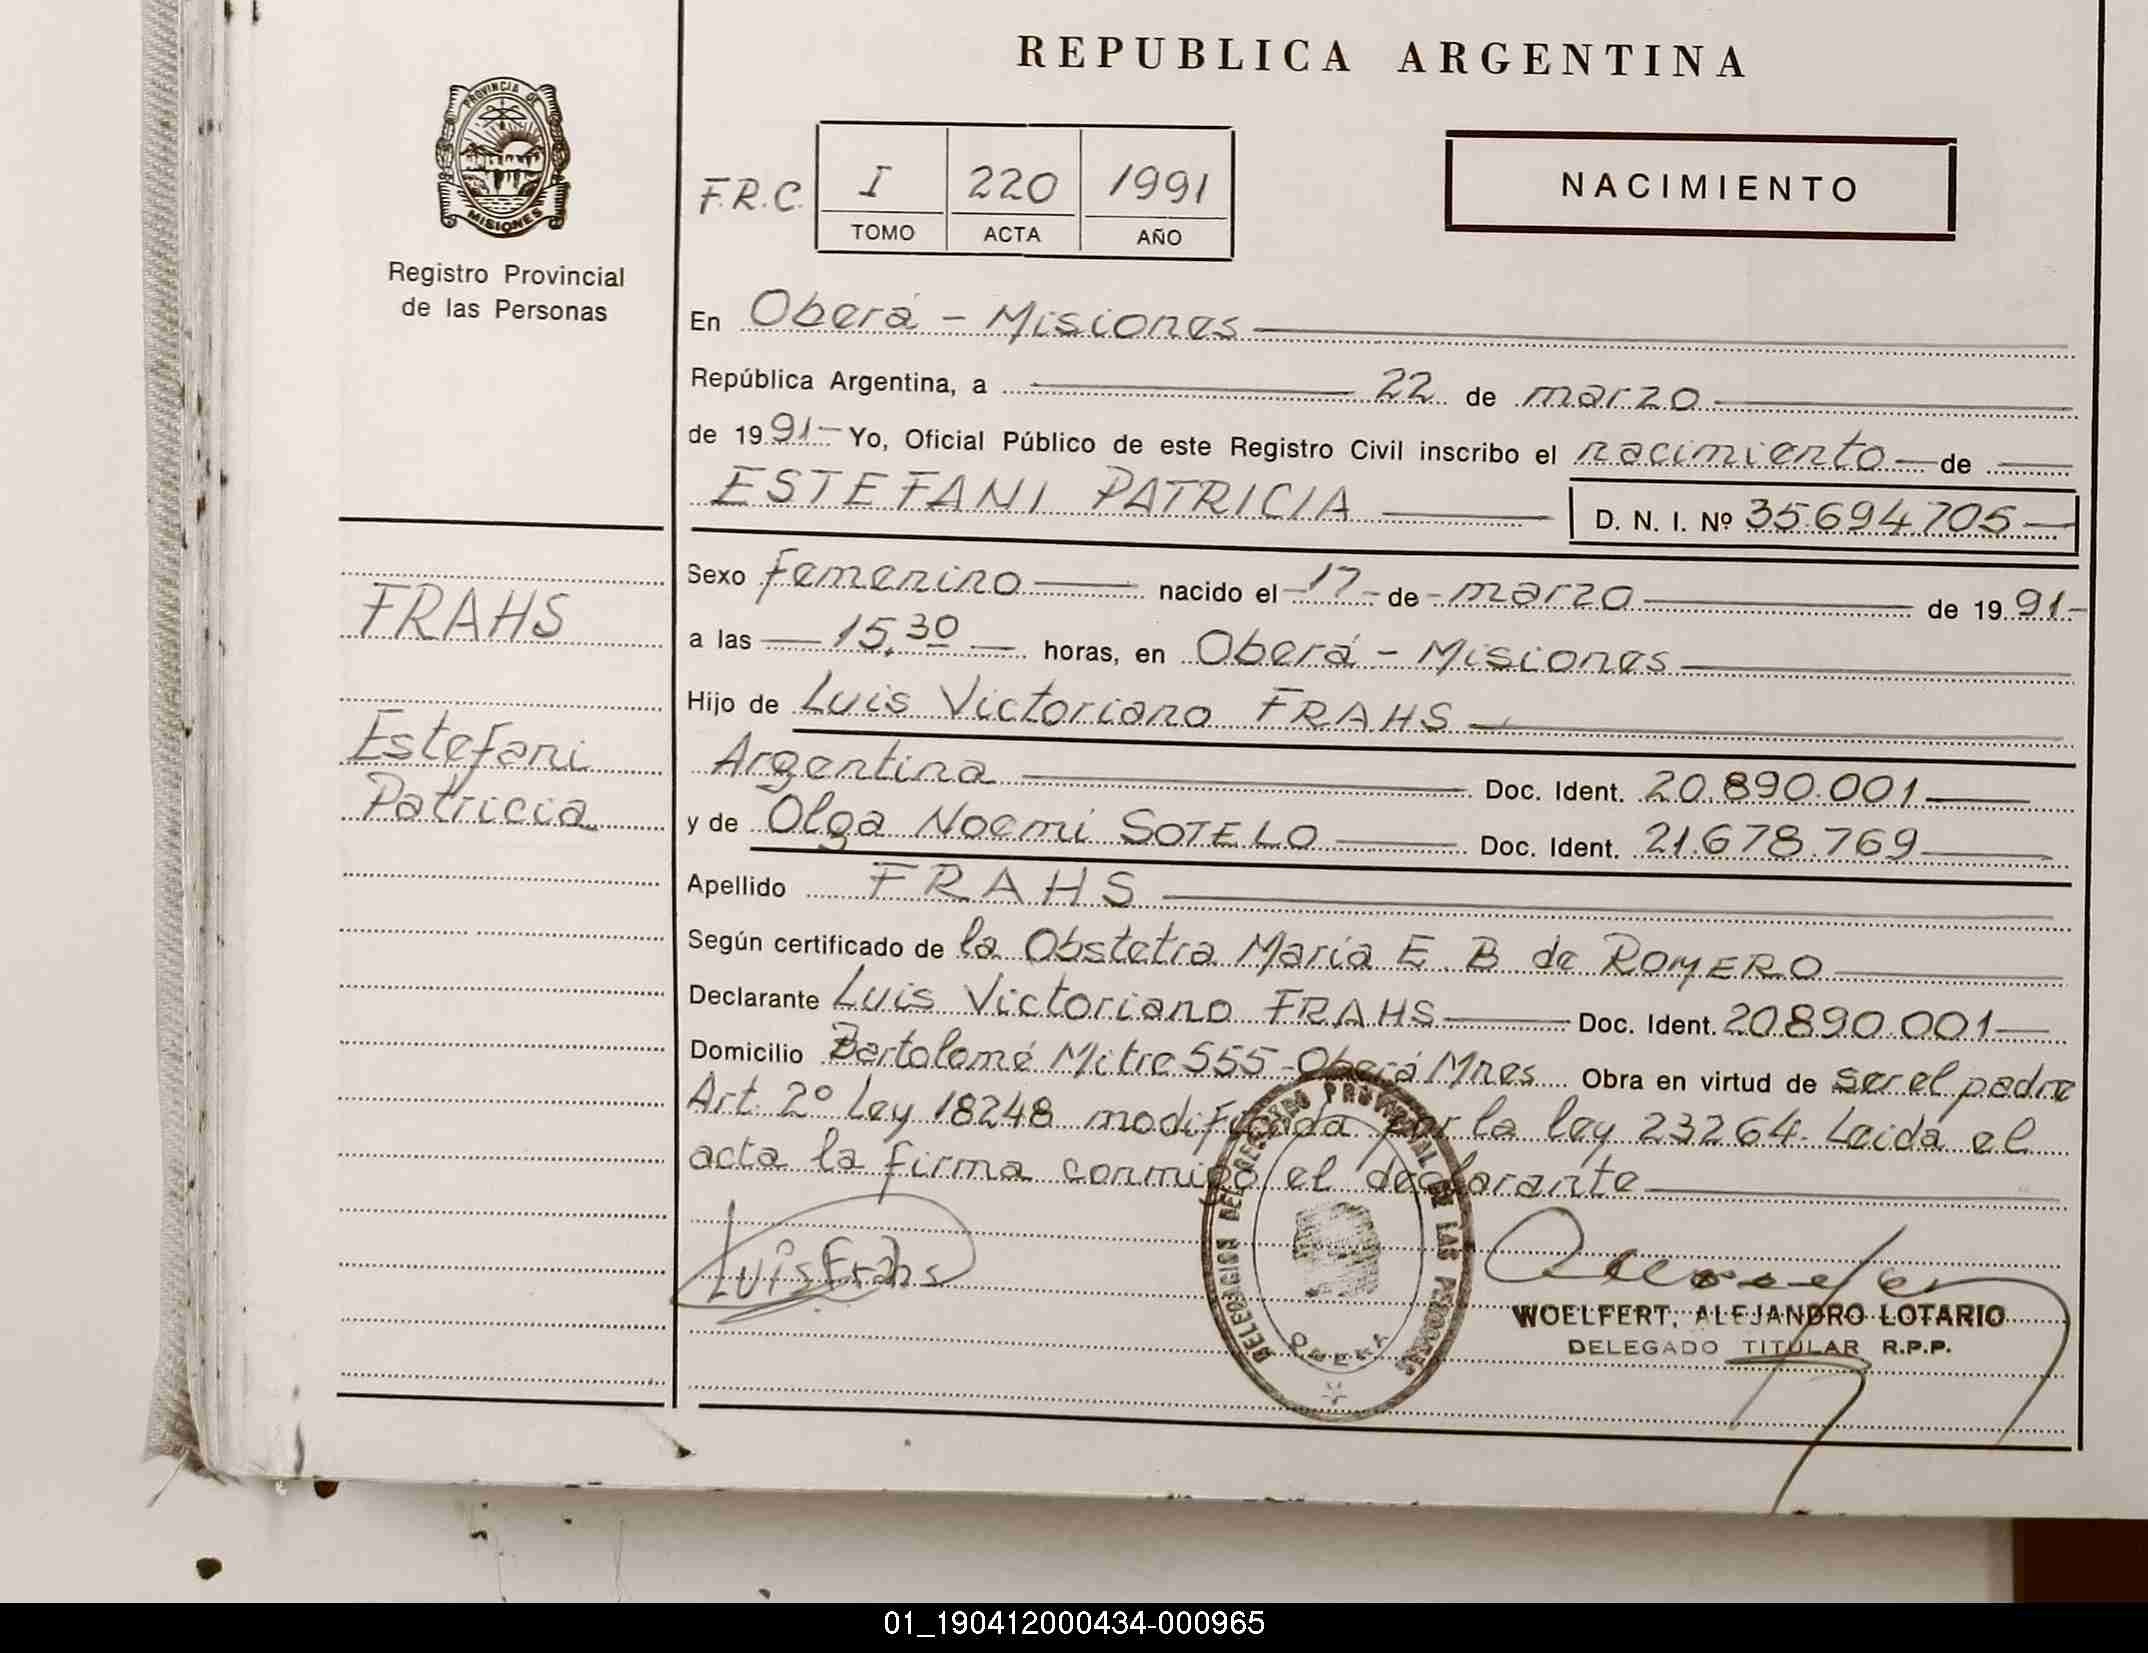 REPUBLICA ARGENTINA
PROVINCIA DE
MISIONES
Registro Provincial
de las Personas
F.R.C. I 220 1991
TOMO ACTA AÑO
NACIMIENTO
En Oberá - Misiones
República Argentina, a 22 de marzo
de 1991- Yo, Oficial Público de este Registro Civil inscribo el nacimiento de
ESTEFANI PATRICIA D. N. I. Nº 35.694.705
FRAHS
Estefani
Patricia
Sexo Femenino nacido el 17 de marzo de 1991-
a las 15,30 horas, en Oberá - Misiones
Hijo de Luis Victoriano FRAHS
Argentina Doc. Ident. 20.890.001
y de Olga Noemi SOTELO Doc. Ident. 21.678.769
Apellido FRAHS
Según certificado de la Obstetra Maria E B de ROMERO
Declarante Luis Victoriano FRAHS Doc. Ident. 20.890.001
Domicilio Bartolomé Mitre 555 - Oberá Mnes Obra en virtud de ser el padre
Art. 2º Ley 18248 modificada por la ley 23264. Leida el
acta la firma conmigo el declarante
Luis Frahs
DELEGACION DEL REGISTRO PROVINCIAL DE LAS PERSONAS
OBERA
WOELFERT, ALEJANDRO LOTARIO
DELEGADO TITULAR R.P.P.
01_190412000434-000965